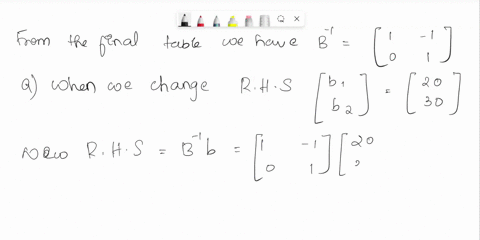 From the final table we have B⁻¹ = [1 -1
0 1]
Q) When we change R.H.S [b1
b2] = [20
30]
now R.H.S = B⁻¹b = [1 -1
0 1] [20